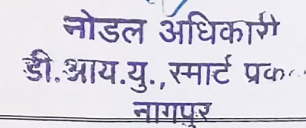 नोडल अधिकारी
डी.आय.यु.,स्मार्ट प्रक
नागपूर